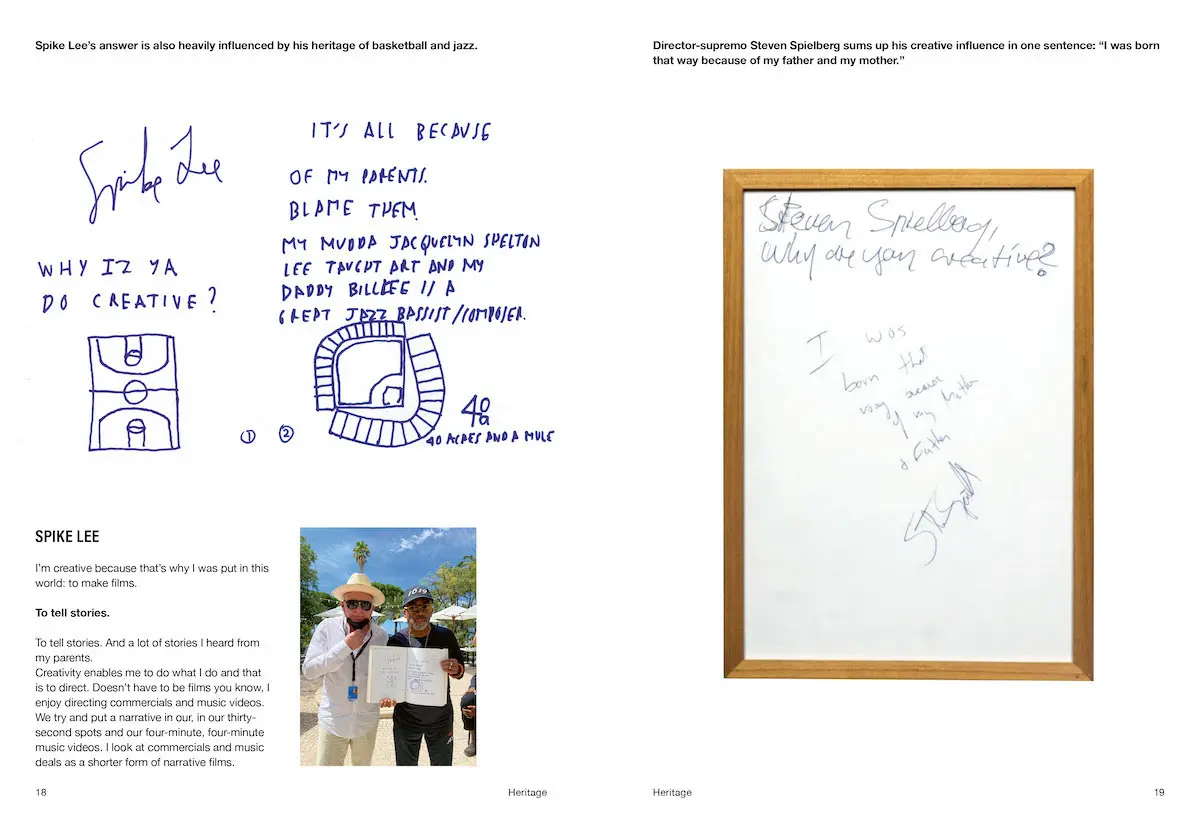 Spike Lee's answer is also heavily influenced by his heritage of basketball and jazz.
Spike Lee
WHY IZ YA
DO CREATIVE?
IT'S ALL BECAUSE
OF MY PARENTS.
BLAME THEM.
MY MUDDA JACQUELYN SHELTON
LEE TAUGHT ART AND MY
DADDY BILL LEE IS A
GREAT JAZZ BASSIST/COMPOSER.
① ②
40
A
40 ACRES AND A MULE
SPIKE LEE
I'm creative because that's why I was put in this
world: to make films.
To tell stories.
To tell stories. And a lot of stories I heard from
my parents.
Creativity enables me to do what I do and that
is to direct. Doesn't have to be films you know, I
enjoy directing commercials and music videos.
We try and put a narrative in our, in our thirty-
second spots and our four-minute, four-minute
music videos. I look at commercials and music
deals as a shorter form of narrative films.
18
Heritage
Director-supremo Steven Spielberg sums up his creative influence in one sentence: "I was born
that way because of my father and my mother."
Steven Spielberg,
why are you creative?
I was
born that
way because
of my mother
& Father
Heritage
19